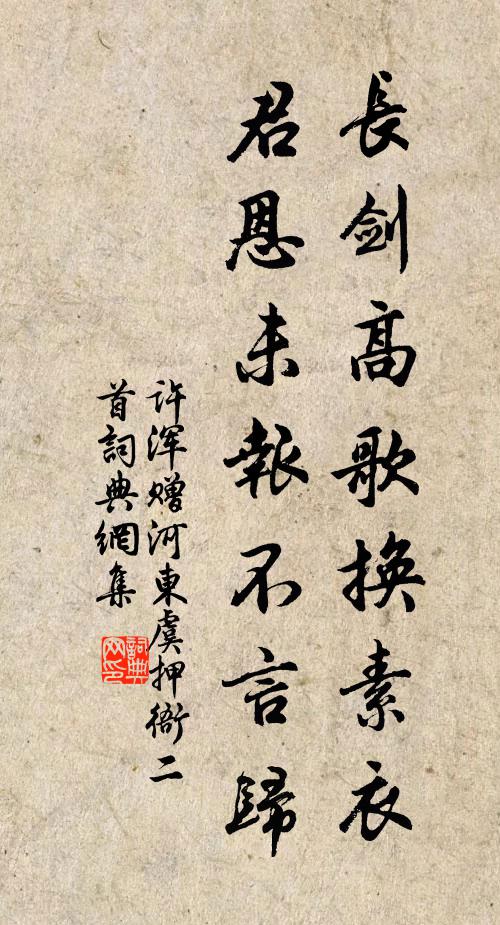 長劍高歌換素衣
君恩未報不言歸
许渾赠河東虞押衙二
首詞典網集
詞典网印